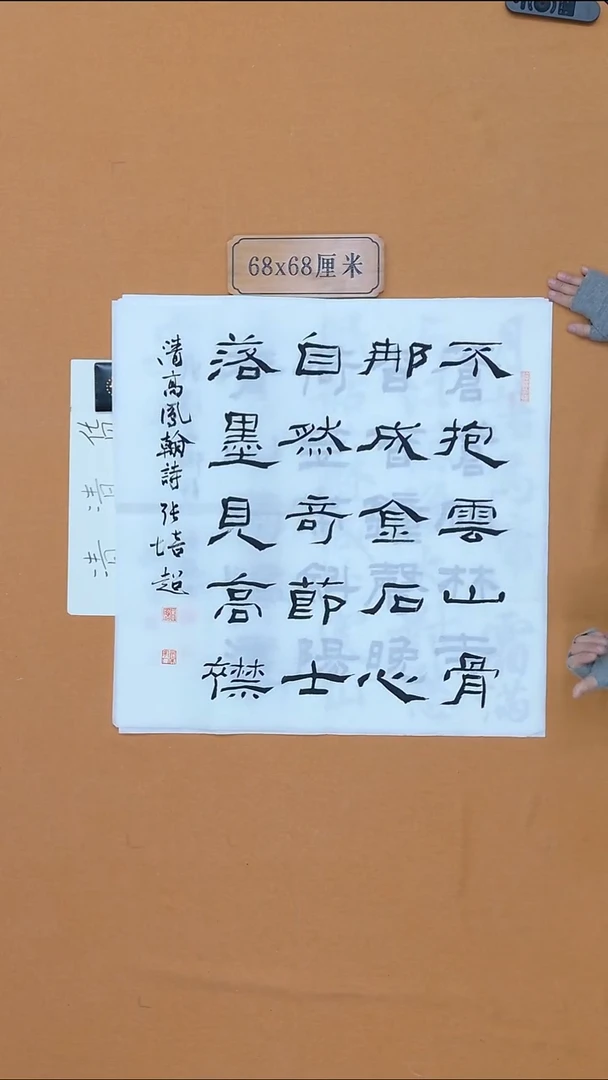 68x68厘米
不抱雲山骨
那成金石心
自然奇節士
落墨見高襟
清高鳳翰詩 張培超